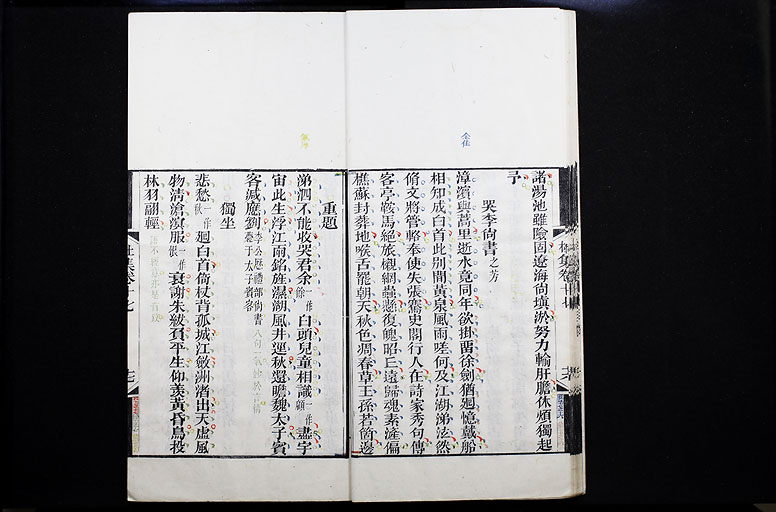 諸湯池雖險固遼海尚塡淤努力輸肝膽休煩獨起
予
哭李尚書之芳
漳濱與蒿里逝水竟同年欲掛留徐劍猶迴憶戴船
相知成白首此別閒黃泉風雨嗟何及江湖涕泫然
脩文將管輅奉使失張騫史閣行人在詩家秀句傳
客亭鞍馬絕旅櫬網蟲懸復魄昭丘遠歸魂素滻偏
樵蘇封葬地喉舌罷朝天秋色凋春草王孫若箇邊
杜集卷十七
重題
涕泗不能收哭君余一作餘白頭兒童相識一作顧盡宇
宙此生浮江雨銘旌濕湖風井逕秋還瞻魏太子賓
客減應劉李公歷禮部尚書薨于太子賓客
獨坐
悲愁一作秋迴白首倚杖背孤城江斂洲渚出天虛風
物清滄溟服一作恨衰謝朱紱負平生仰羨黃昏鳥投
林羽翮輕
杜集卷十七